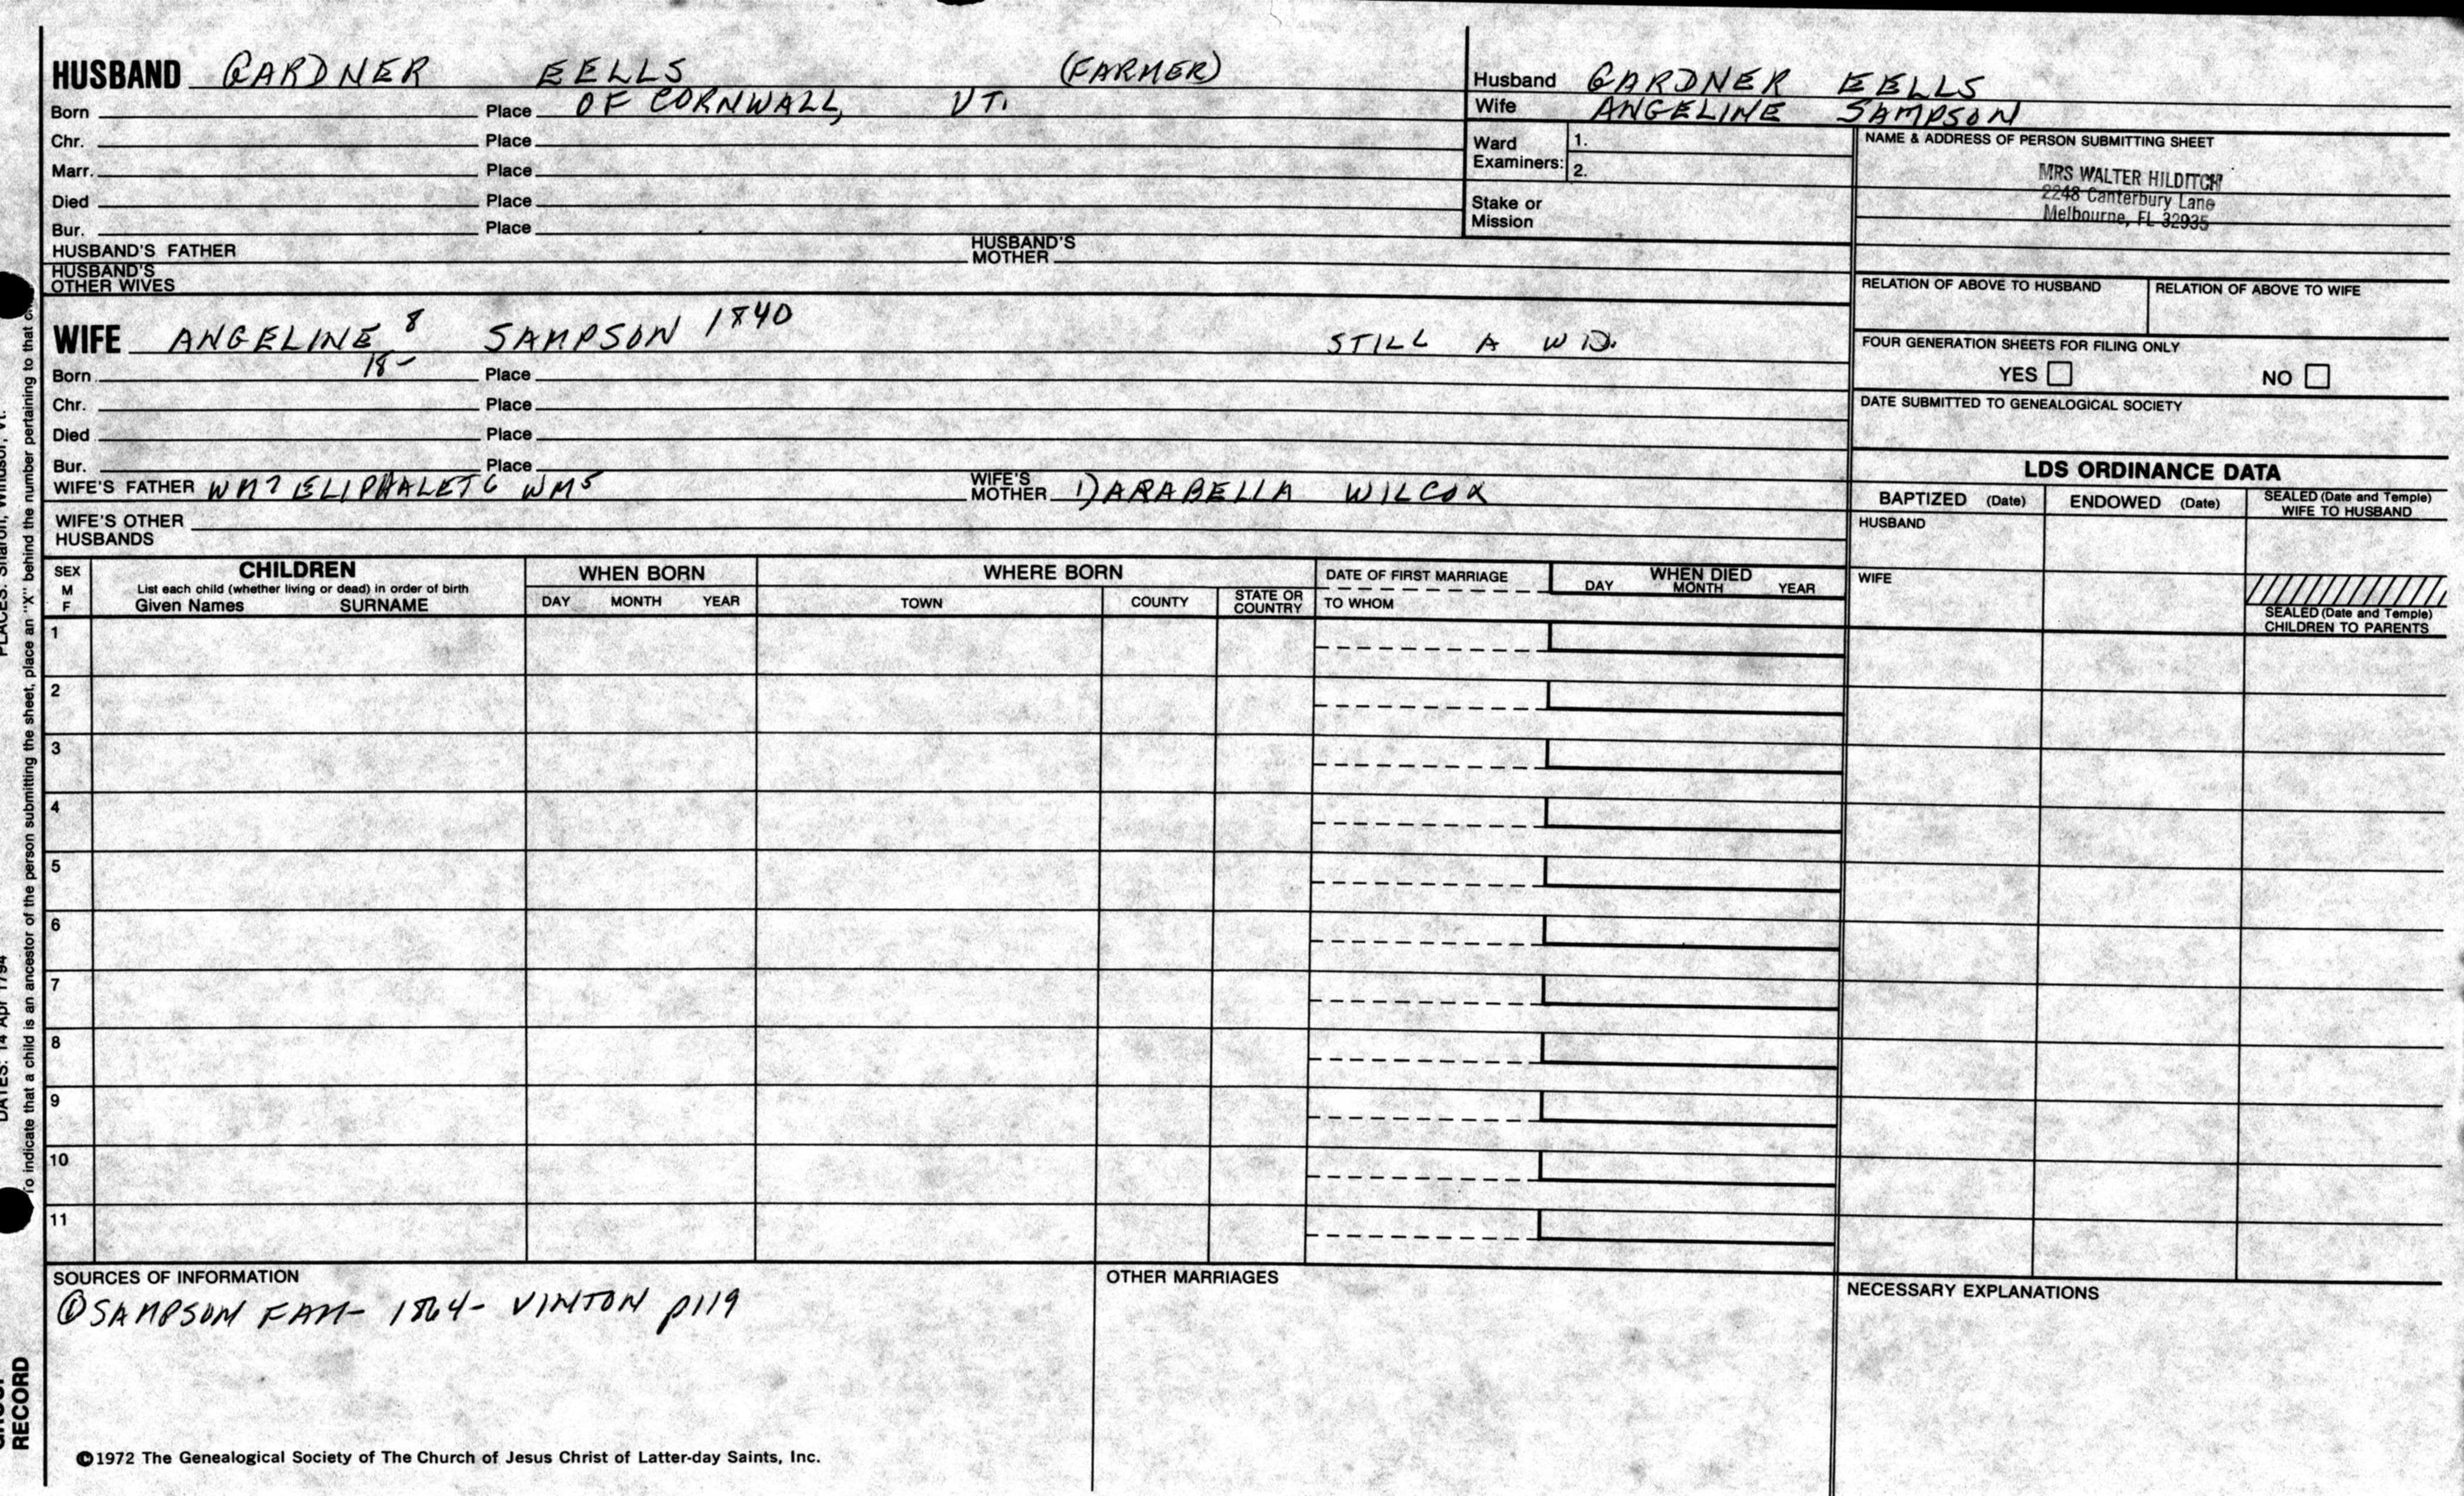 HUSBAND GARDNER EELLS (FARMER)
Born Place OF CORNWALL, VT.
Chr. Place
Marr. Place
Died Place
Bur. Place
HUSBAND'S FATHER HUSBAND'S MOTHER
HUSBAND'S OTHER WIVES
Husband GARDNER EELLS
Wife ANGELINE SAMPSON
Ward Examiners: 1.
2.
Stake or Mission
NAME & ADDRESS OF PERSON SUBMITTING SHEET
MRS WALTER HILDITCH
2248 Canterbury Lane
Melbourne, FL 32935
RELATION OF ABOVE TO HUSBAND RELATION OF ABOVE TO WIFE
FOUR GENERATION SHEETS FOR FILING ONLY
YES NO
DATE SUBMITTED TO GENEALOGICAL SOCIETY
WIFE ANGELINE 8 SAMPSON 1840 STILL A WD.
Born 18- Place
Chr. Place
Died Place
Bur. Place
WIFE'S FATHER WM7 ELIPHALET6 WM5 WIFE'S MOTHER 1) ARABELLA WILCOX
WIFE'S OTHER HUSBANDS
LDS ORDINANCE DATA
BAPTIZED (Date) ENDOWED (Date) SEALED (Date and Temple) WIFE TO HUSBAND
HUSBAND
WIFE
SEALED (Date and Temple) CHILDREN TO PARENTS
SEX M F
CHILDREN
List each child (whether living or dead) in order of birth
Given Names SURNAME
WHEN BORN
DAY MONTH YEAR
WHERE BORN
TOWN COUNTY STATE OR COUNTRY
DATE OF FIRST MARRIAGE
TO WHOM
WHEN DIED
DAY MONTH YEAR
1
2
3
4
5
6
7
8
9
10
11
SOURCES OF INFORMATION
① SAMPSON FAM- 1864- VINTON p119
OTHER MARRIAGES
NECESSARY EXPLANATIONS
©1972 The Genealogical Society of The Church of Jesus Christ of Latter-day Saints, Inc.
To indicate that a child is an ancestor of the person submitting the sheet, place an "X" behind the number pertaining to that
PLACES: Sharon, Windsor, Vt.
DATES: 14 Apr 1794
RECORD